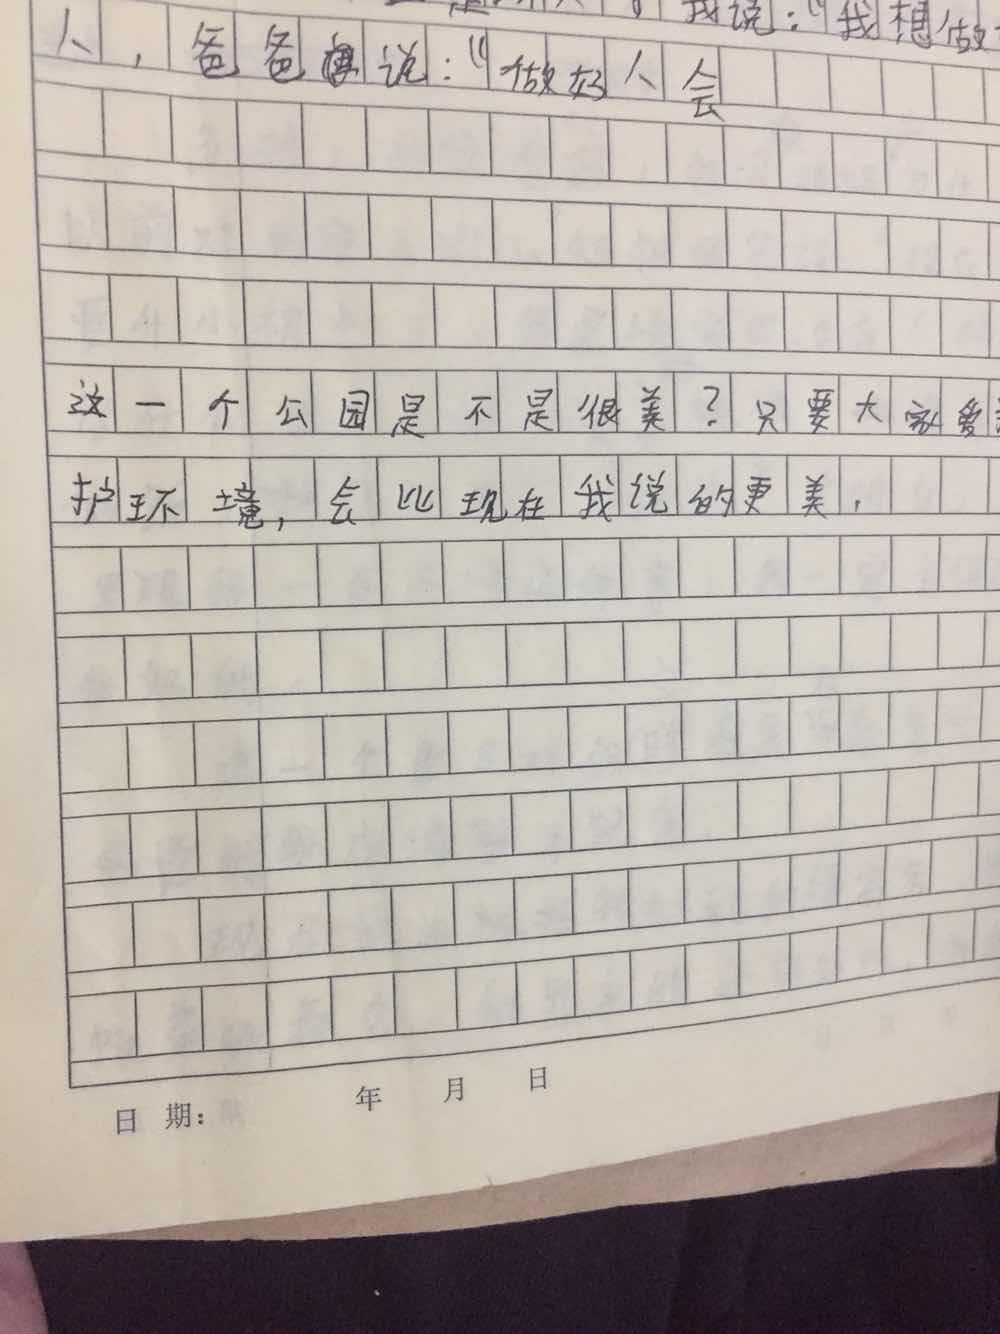 我说：“我想做
人，爸爸说：“做好人会
这一个公园是不是很美？只要大家爱
护环境，会比现在我说的更美．
日期： 年 月 日